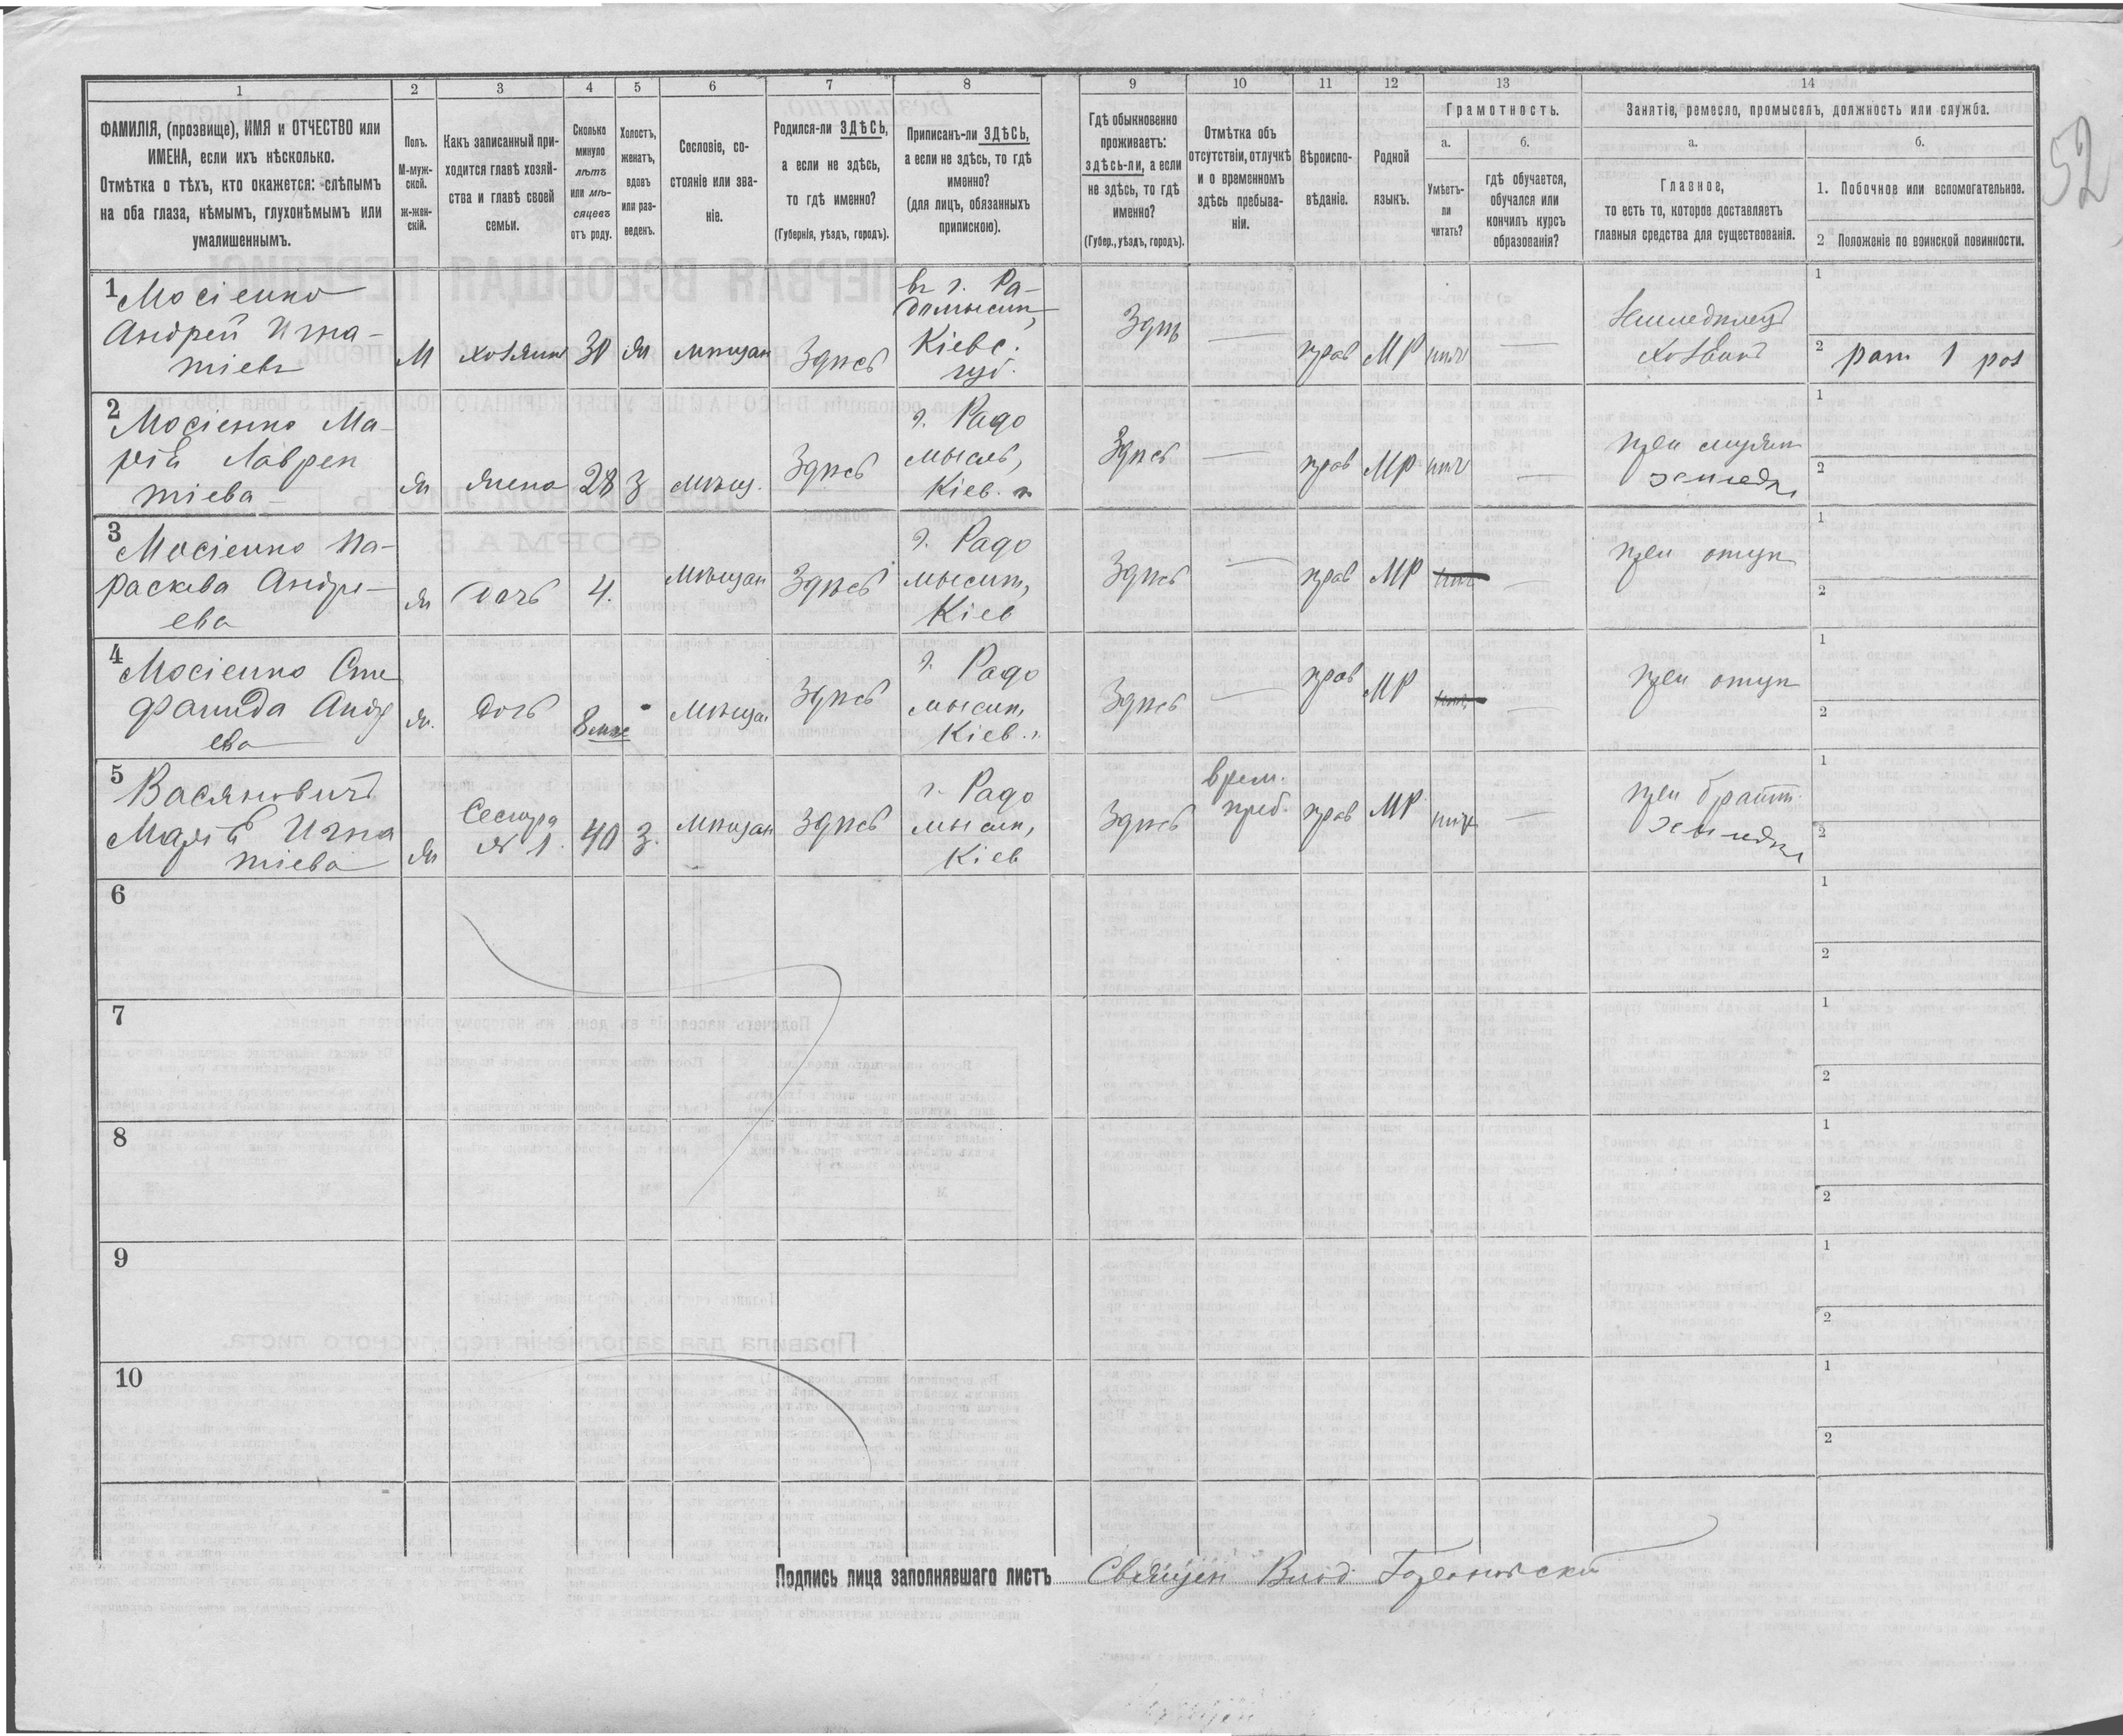 1 2 3 4 5 6 7 8 9 10 11 12 13 14
ФАМИЛІЯ, (прозвище), ИМЯ и ОТЧЕСТВО или
ИМЕНА, если ихъ нѣсколько.
Отмѣтка о тѣхъ, кто окажется: слѣпымъ
на оба глаза, нѣмымъ, глухонѣмымъ или
умалишеннымъ.
Полъ.
М-муж-
ской.
ж-жен-
скій.
Какъ записанный при-
ходится главѣ хозяй-
ства и главѣ своей
семьи.
Сколько
минуло
лѣтъ
или мѣ-
сяцевъ
отъ роду.
Холостъ,
женатъ,
вдовъ
или раз-
веденъ.
Сословіе, со-
стояніе или зва-
ніе.
Родился-ли ЗДѢСЬ,
а если не здѣсь,
то гдѣ именно?
(Губернія, уѣздъ, городъ).
Приписанъ-ли ЗДѢСЬ,
а если не здѣсь, то гдѣ
именно?
(для лицъ, обязанныхъ
припискою).
Гдѣ обыкновенно
проживаетъ:
здѣсь-ли, а если
не здѣсь, то гдѣ
именно?
(Губер., уѣздъ, городъ).
Отмѣтка объ
отсутствіи, отлучкѣ
и о временномъ
здѣсь пребыва-
ніи.
Вѣроиспо-
вѣданіе.
Родной
языкъ.
Грамотность.
а.
Умѣетъ-
ли
читать?
б.
гдѣ обучается,
обучался или
кончилъ курсъ
образованія?
Занятіе, ремесло, промыселъ, должность или служба.
а.
Главное,
то есть то, которое доставляетъ
главныя средства для существованія.
б.
1. Побочное или вспомогательное.
2 Положеніе по воинской повинности.
52
1
Мосіенко
Андрей Игна-
тіевъ
М
хозяинъ
30
ж
мѣщан
Здѣсь
въ г. Ра-
домыслѣ,
Кіевс.
губ.
Здѣсь
—
прав
МР
нѣт
—
Земледѣлец
хозяинъ
1
2 рат 1 раз
2
Мосіенко Ма-
рія Лаврен
тіева
ж
жена
28
З
мѣщ.
Здѣсь
г. Радо
мыслѣ,
Кіев. г.
Здѣсь
—
прав
МР
нѣт
—
при мужѣ
земледѣл
1
2
3
Мосіенко Па-
раскева Андре-
ева
ж
дочь
4.
мѣщан
Здѣсь
г. Радо
мыслѣ,
Кіев
Здѣсь
—
прав
МР
нѣт
—
при отцѣ
1
2
4
Мосіенко Сте
фанида Андр
ева
ж.
дочь
8 мѣс
мѣщан
Здѣсь
г. Радо
мыслѣ,
Кіев. г.
Здѣсь
—
прав
МР
нѣт
—
при отцѣ
1
2
5
Васяновичъ
Марія Игна
тіева
ж
Сестра
№ 1.
40
З.
мѣщан
Здѣсь
г. Радо
мыслѣ,
Кіев
Здѣсь
врем.
преб.
прав
МР
нѣт
—
при братѣ
земледѣл
1
2
6
1
2
7
1
2
8
1
2
9
1
2
10
1
2
Подпись лица заполнявшаго листъ Священ Влад.